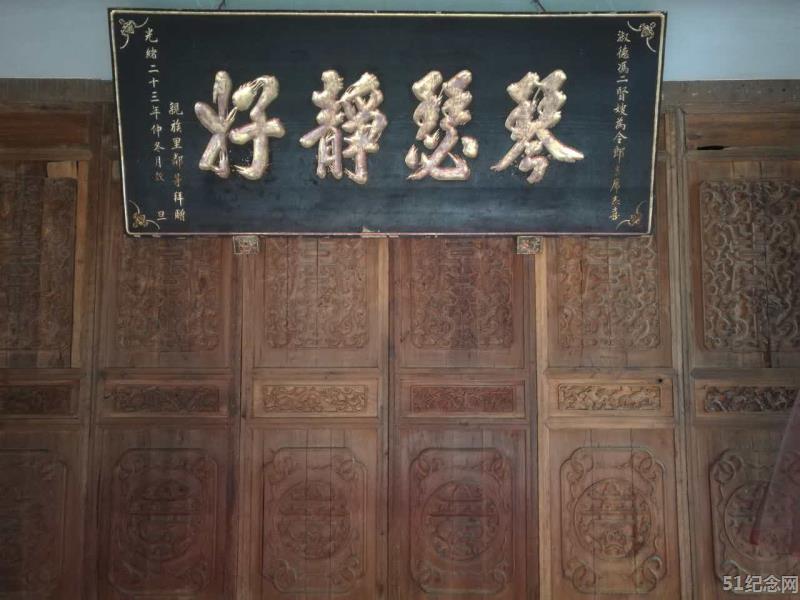 淑德馮二賢嫂為令郎吉席志喜
琴瑟靜好
親族里鄰等拜贈
光緒二十三年仲冬月穀旦
51纪念网